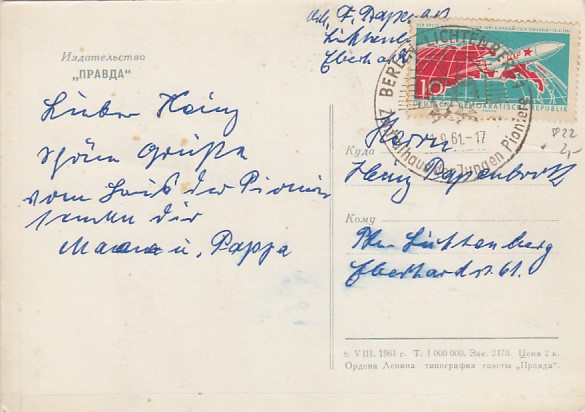 Издательство
„ПРАВДА“
Lieber Heinz
schöne Grüße
vom Haus der Pionier
senden dir
Mama u. Pappa
Abs. F. Papen
Eberhard
10
DEUTSCHE DEMOKRATISCHE REPUBLIK
BERLIN-LICHTENBERG
Zentralhaus der Jungen Pioniere
61.-17
Куда
Herrn
Heinz Papenbrock
Кому
Bln Lichtenberg
Eberhardstr. 61.
6. VIII. 1961 г. Т. 1 000 000. Зак. 2173. Цена 2 к.
Ордена Ленина типография газеты „Правда“.